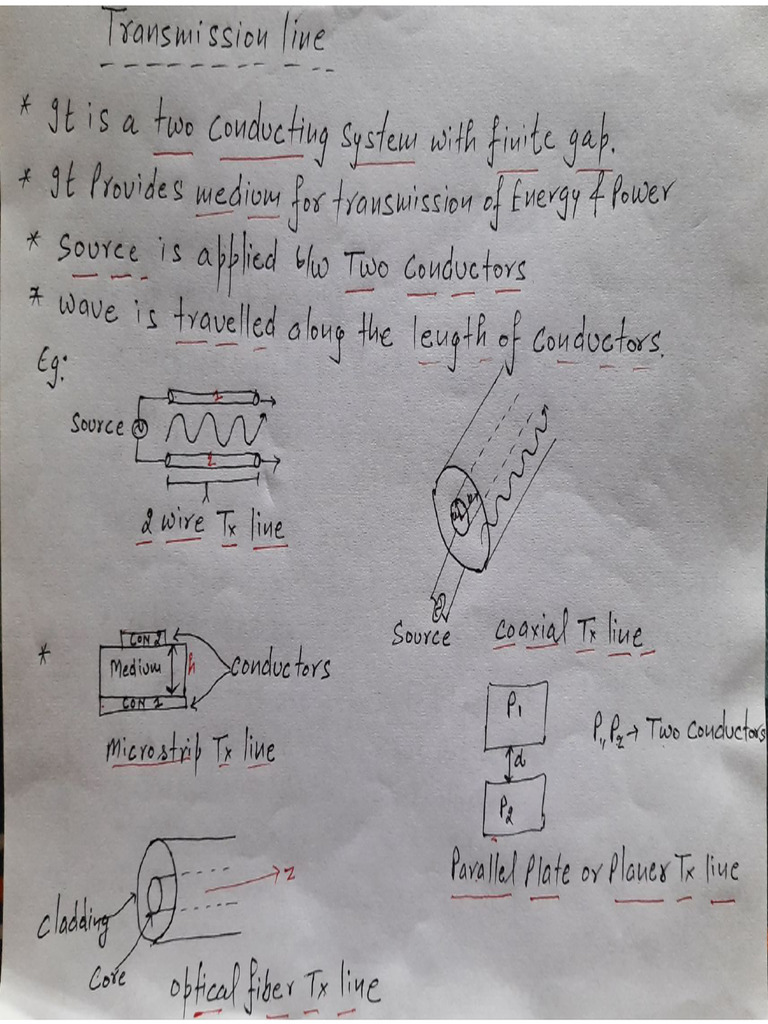 Transmission line
* It is a two conducting system with finite gap.
* It Provides medium for transmission of Energy & Power
* Source is applied b/w Two Conductors
* Wave is travelled along the length of conductors.
Eg:
1
Source
2
2 wire Tx line
Source
Coaxial Tx line
*
CON 2
Medium
h
conductors
CON 1
Microstrip Tx line
P1
d
P2
P1, P2 → Two Conductors
Parallel Plate or Planer Tx line
z
Cladding
Core
Optical fiber Tx line